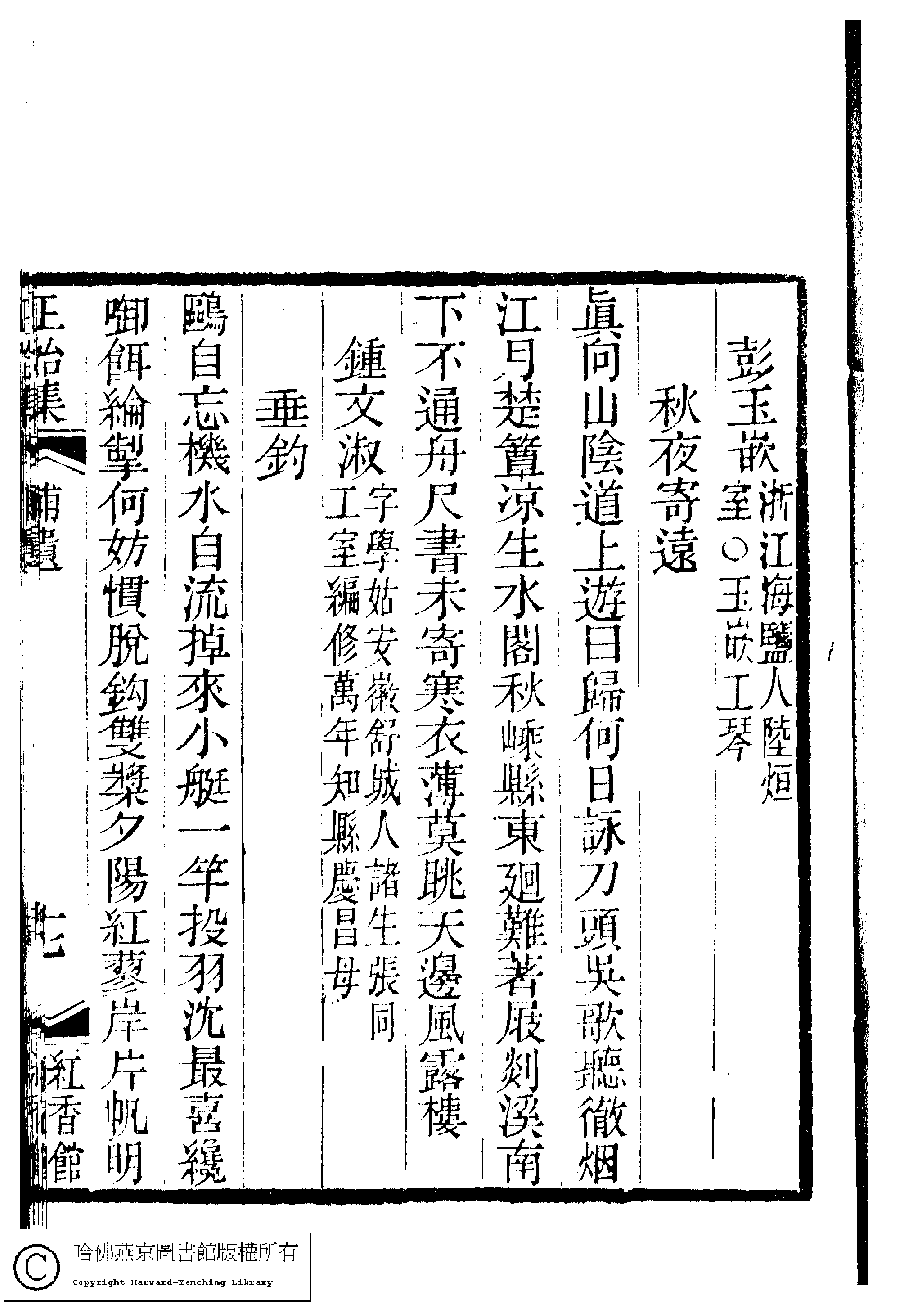 彭玉嵌浙江海鹽人陸烜
室○玉嵌工琴
秋夜寄遠
眞向山陰道上遊曰歸何日詠刀頭吳歌聽徹烟
江月楚簟凉生水閣秋嵊縣東廻難著屐剡溪南
下不通舟尺書未寄寒衣薄莫眺天邊風露樓
鍾文淑字學姑安徽舒城人諸生張同
工室編修萬年知縣慶昌母
垂釣
鷗自忘機水自流掉來小艇一竿投羽沈最喜纔
啣餌綸掣何妨慣脫鈎雙槳夕陽紅蓼岸片帆明
正始集
補遺
七
紅香館
哈佛燕京圖書館版權所有
Copyright Harvard-Yenching Library